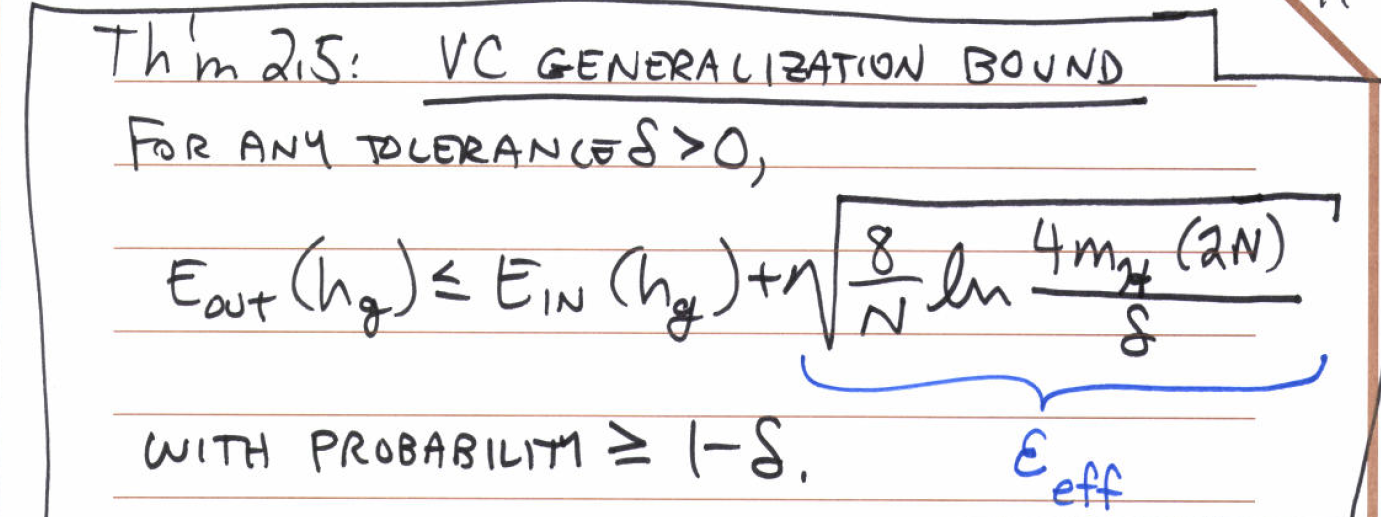 Th'm 2.5: VC GENERALIZATION BOUND
FOR ANY TOLERANCE δ > 0,
E_OUT (h_g) ≤ E_IN (h_g) + √(8/N ln (4 m_ℋ (2N))/δ)
WITH PROBABILITY ≥ 1-δ.
ε_eff